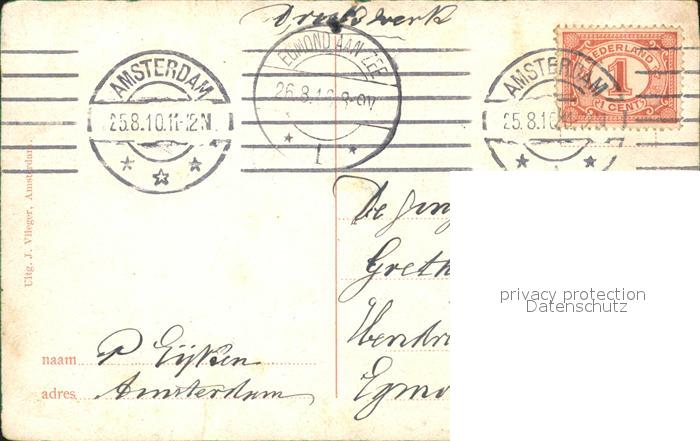 Drukwerk
AMSTERDAM
25.8.10.11-12 N
EGMOND AAN ZEE
26.8.10 8-9V
1
AMSTERDAM
25.8.10.11-12 N
NEDERLAND
1
1 CENT
Uitg. J. Vlieger, Amsterdam.
De Jon
Greth
Hendri
Egmo
privacy protection
Datenschutz
naam P Eijken
adres Amsterdam